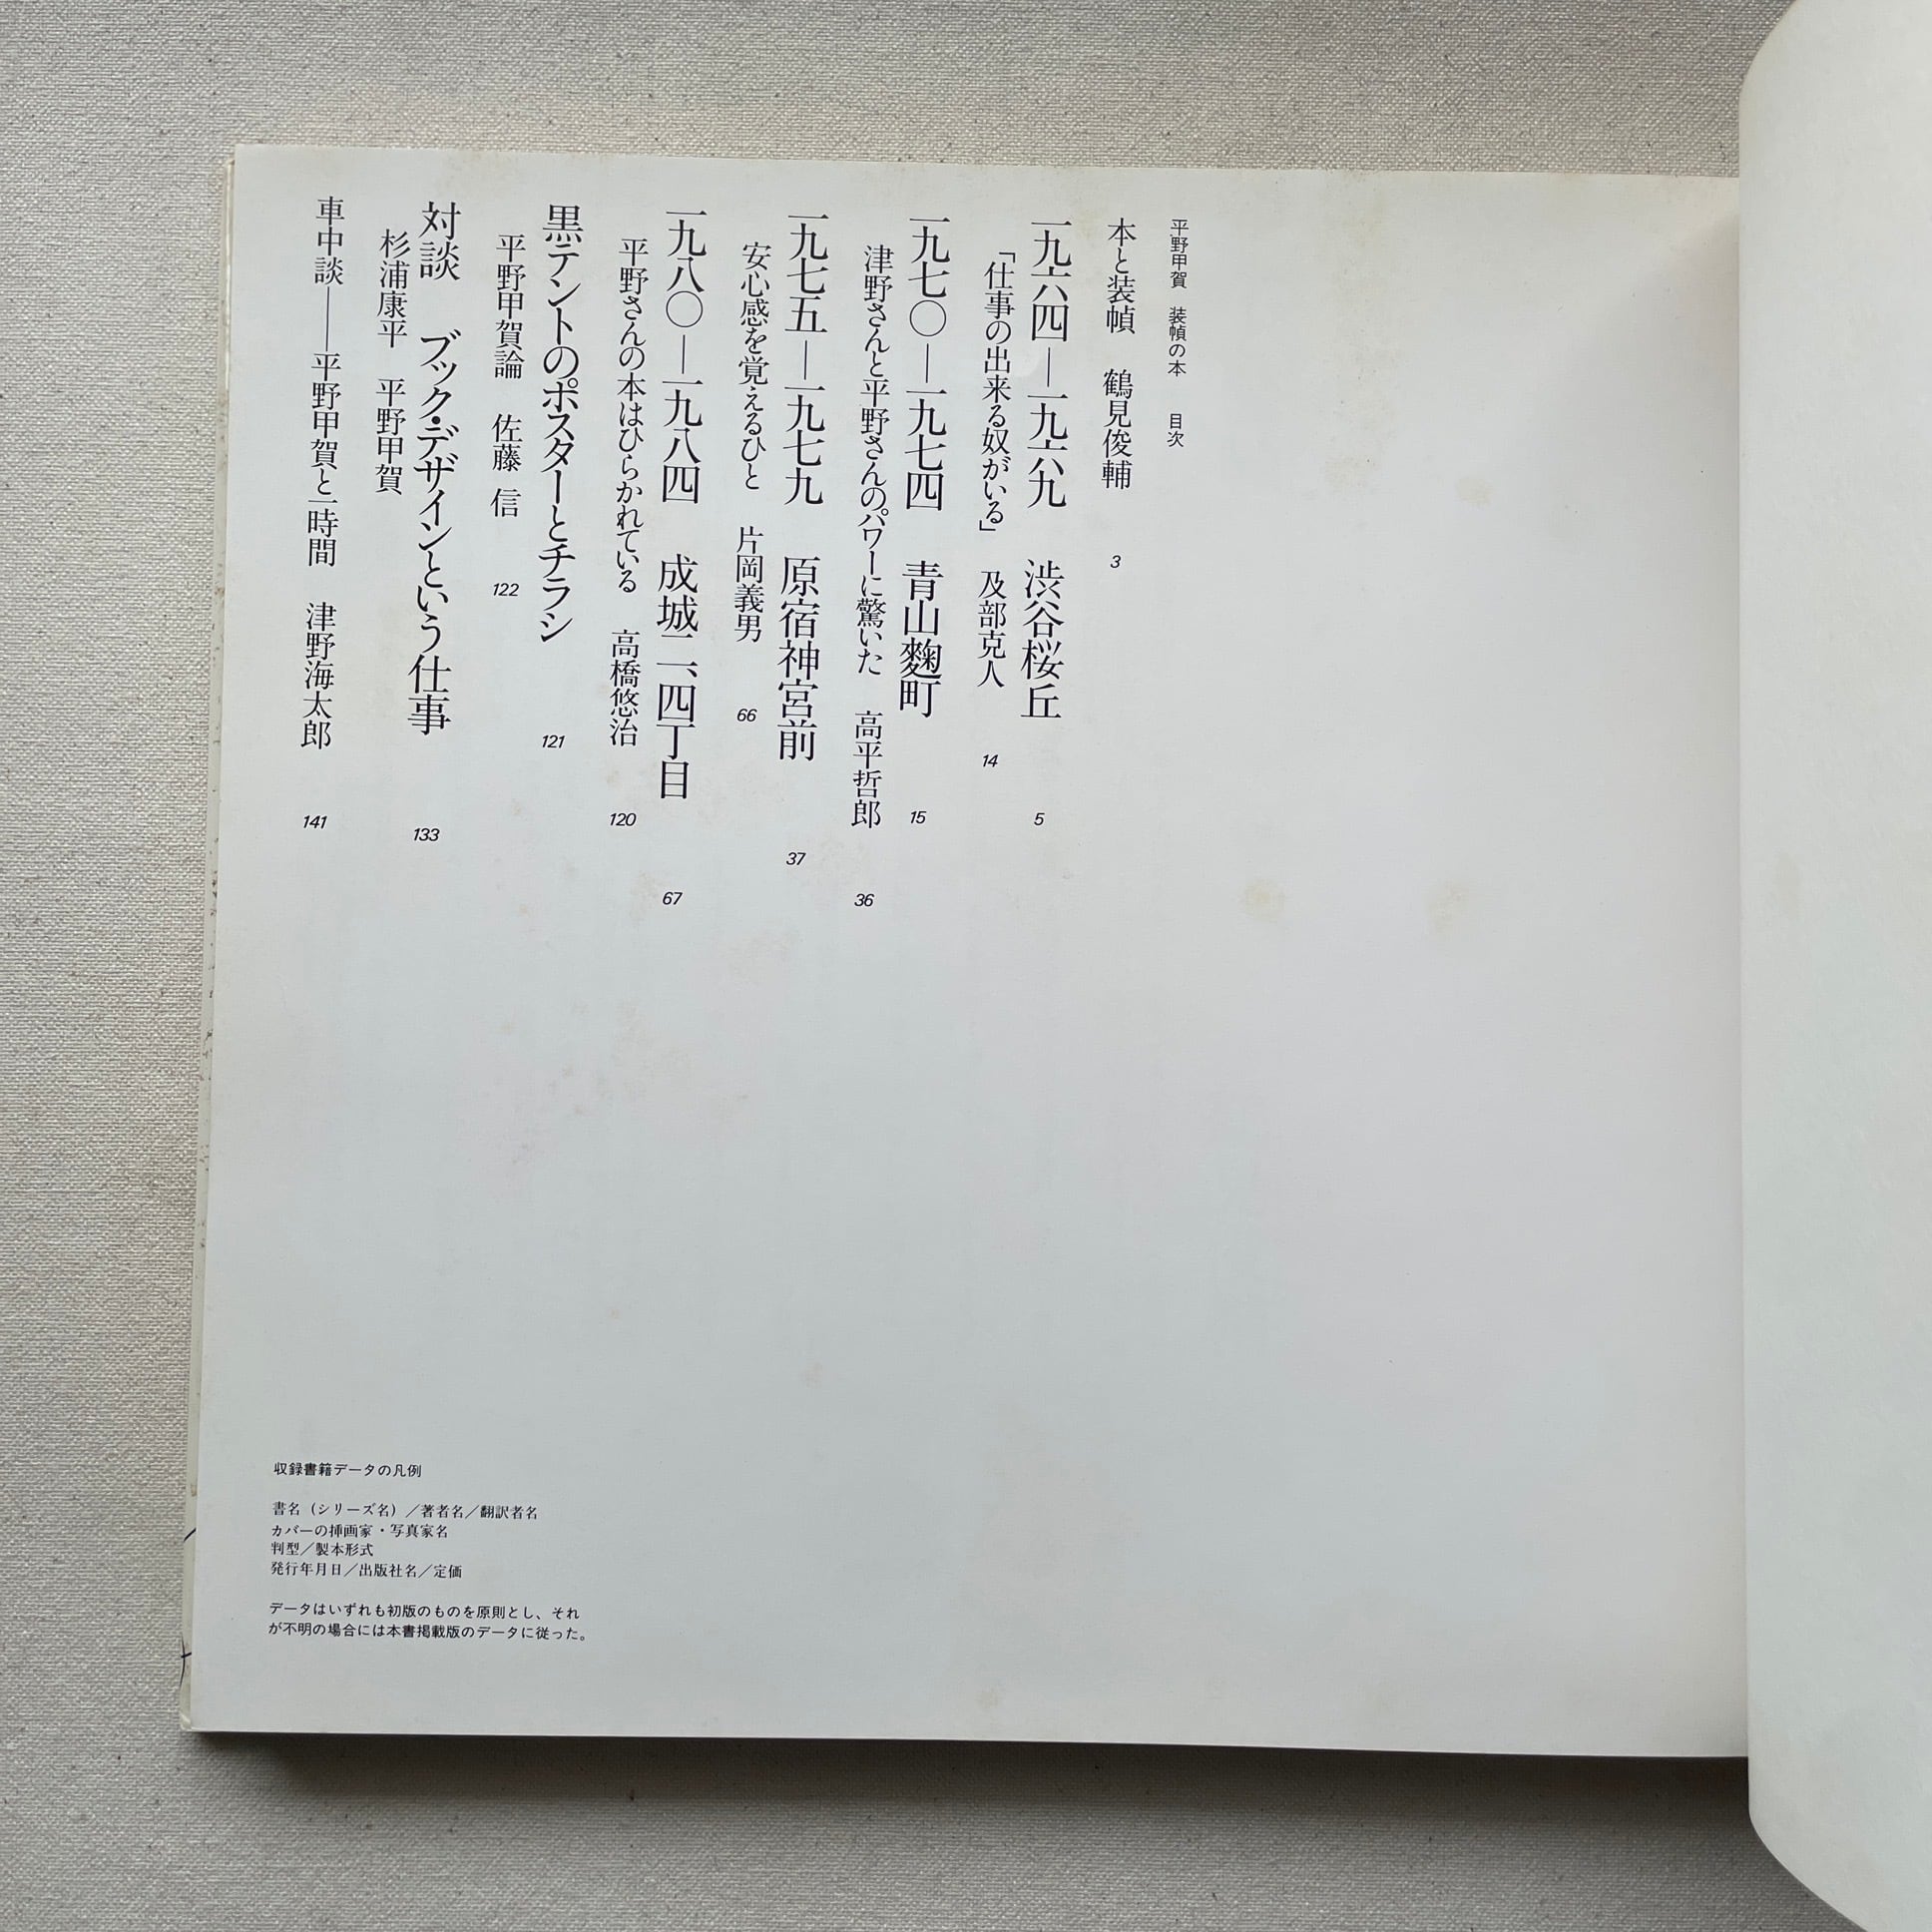 平野甲賀 装幀の本 目次
本と装幀 鶴見俊輔 3
一九六四—一九六九 渋谷桜丘 5
「仕事の出来る奴がいる」 及部克人 14
一九七〇—一九七四 青山麴町 15
津野さんと平野さんのパワーに驚いた 高平哲郎 36
一九七五—一九七九 原宿神宮前 37
安心感を覚えるひと 片岡義男 66
一九八〇—一九八四 成城二、四丁目 67
平野さんの本はひらかれている 高橋悠治 120
黒テントのポスターとチラシ 121
平野甲賀論 佐藤 信 122
対談 ブック・デザインという仕事 133
杉浦康平 平野甲賀
車中談——平野甲賀と一時間 津野海太郎 141
収録書籍データの凡例
書名（シリーズ名）／著者名／翻訳者名
カバーの挿画家・写真家名
判型／製本形式
発行年月日／出版社名／定価
データはいずれも初版のものを原則とし、それ
が不明の場合には本書掲載版のデータに従った。